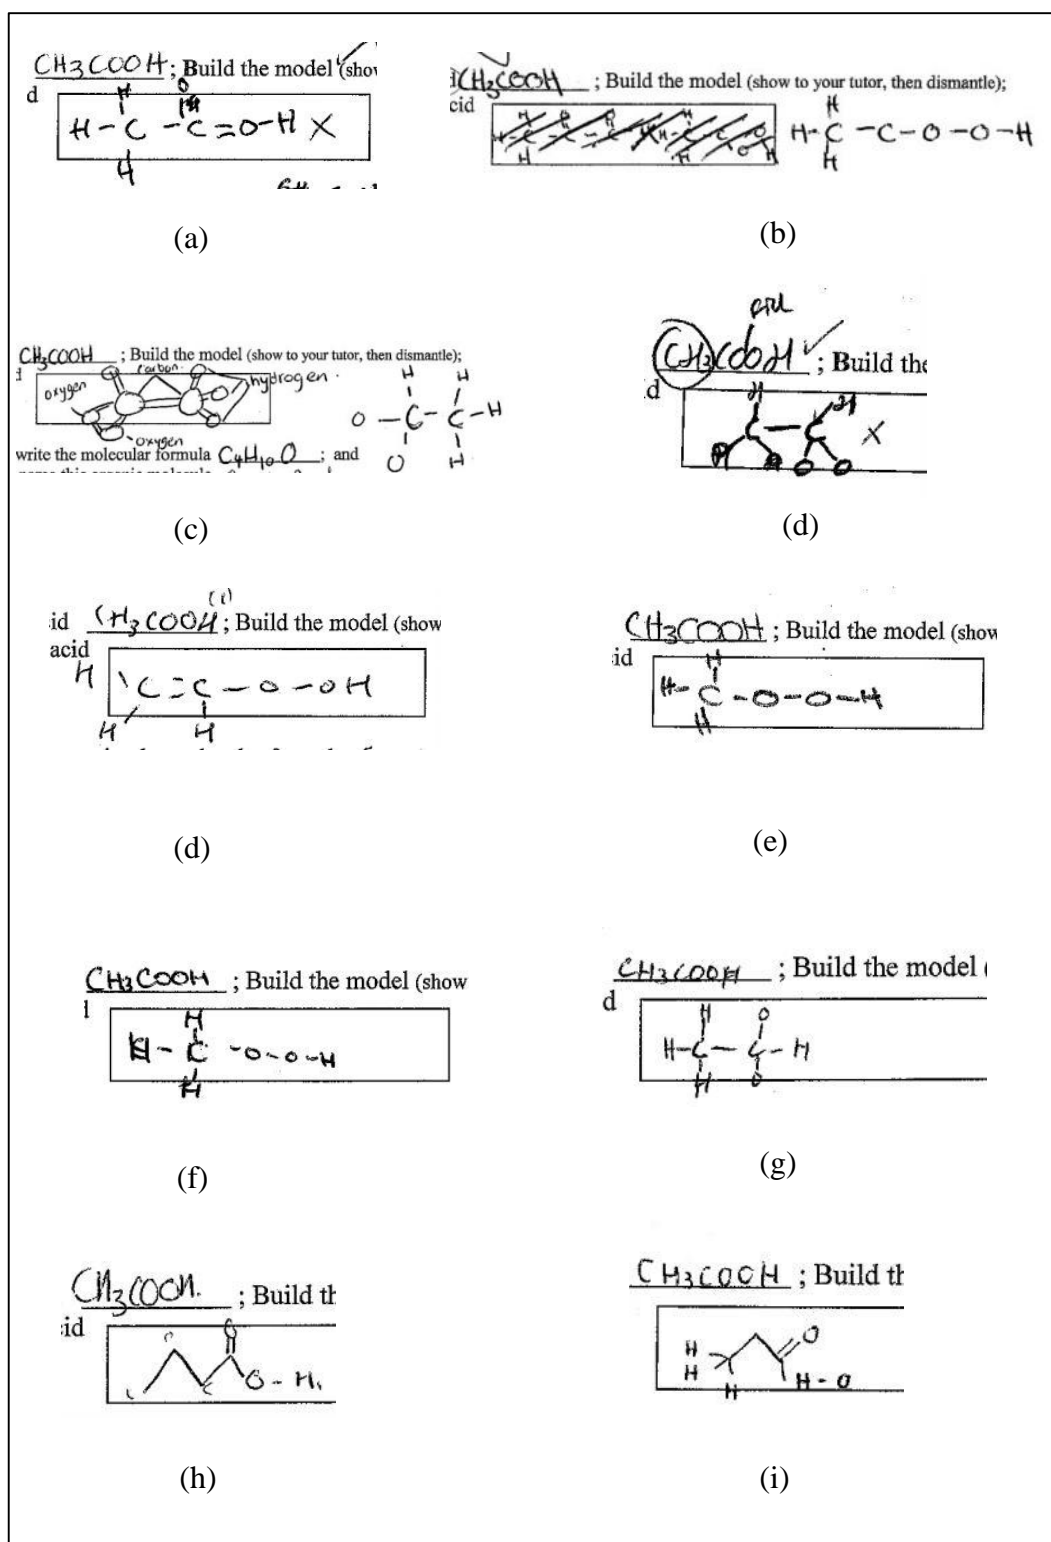 CH3COOH ; Build the model (show
d
H O
H - C - C = O - H X
H
(a)
CH3COOH ; Build the model (show to your tutor, then dismantle);
cid
H
H - C - C - O - O - H
H
(b)
CH3COOH ; Build the model (show to your tutor, then dismantle);
carbon.
oxygen hydrogen.
oxygen
H H
O - C - C - H
O H
write the molecular formula C4H10O ; and
(c)
acid
CH3COOH ; Build the
d
H H
C - C X
H H O O
(d)
(1)
id CH3COOH ; Build the model (show
acid
H
C = C - O - OH
H H
(d)
CH3COOH ; Build the model (show
id
H
H - C - O - O - H
H
(e)
CH3COOH ; Build the model (show
H
H - C - O - O - H
H
(f)
CH3COOH ; Build the model (
d
H O
H - C - C - H
H O
(g)
CH3COOH. ; Build th
id
O
C O - H
(h)
CH3COOH ; Build th
O
H
H
H H - O
(i)